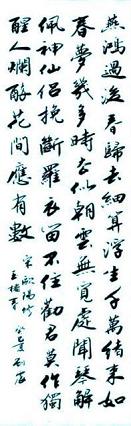 燕鴻過後春歸去細算浮生千萬緒來如
春夢幾多時去似朝雲無覓處聞琴解
佩神仙侶挽斷羅衣留不住勸君莫作獨
醒人爛醉花間應有數
宋歐陽修
玉樓春
癸巳